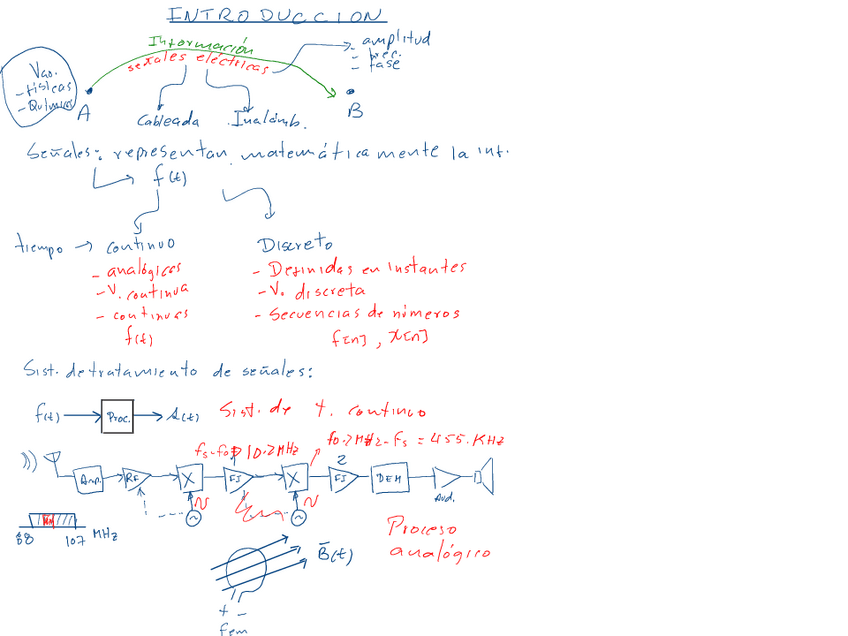 INTRODUCCION
Información
señales eléctricas
- amplitud
- frec.
- fase
Var.
- Físicas
- Químicas
A
B
Cableada
Inalámb.
Señales: representan matemáticamente la inf.
f(t)
tiempo → continuo
Discreto
- analógicos
- V. continua
- continuas
f(t)
- Definidas en instantes
- V. discreta
- Secuencias de números
f[n], x[n]
Sist. de tratamiento de señales:
f(t) → Proc. → s(t)
Sist. de t. continuo
10.7MHz
10.7MHz - fs = 455.KHz
Amp.
RF
X
FI
X
2
FI
DEM
Aud.
N
N
88
107 MHz
Proceso
analógico
B(t)
+ -
fem